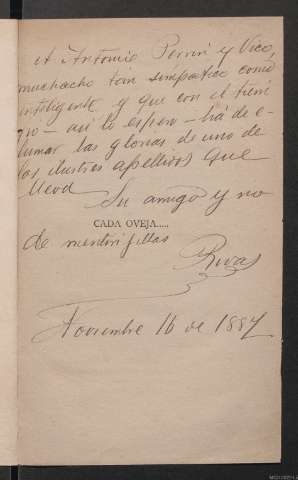 A Antonio Perrin y Vico,
muchacho tan simpatico como
inteligente y que con el tiem
po - asi lo espero - há de e-
lumar las glorias de uno de
los ilustres apellidos que
lleva Su amigo y no
CADA OVEJA.....
de mentirijillas
Rivas
Noviembre 16 de 1887